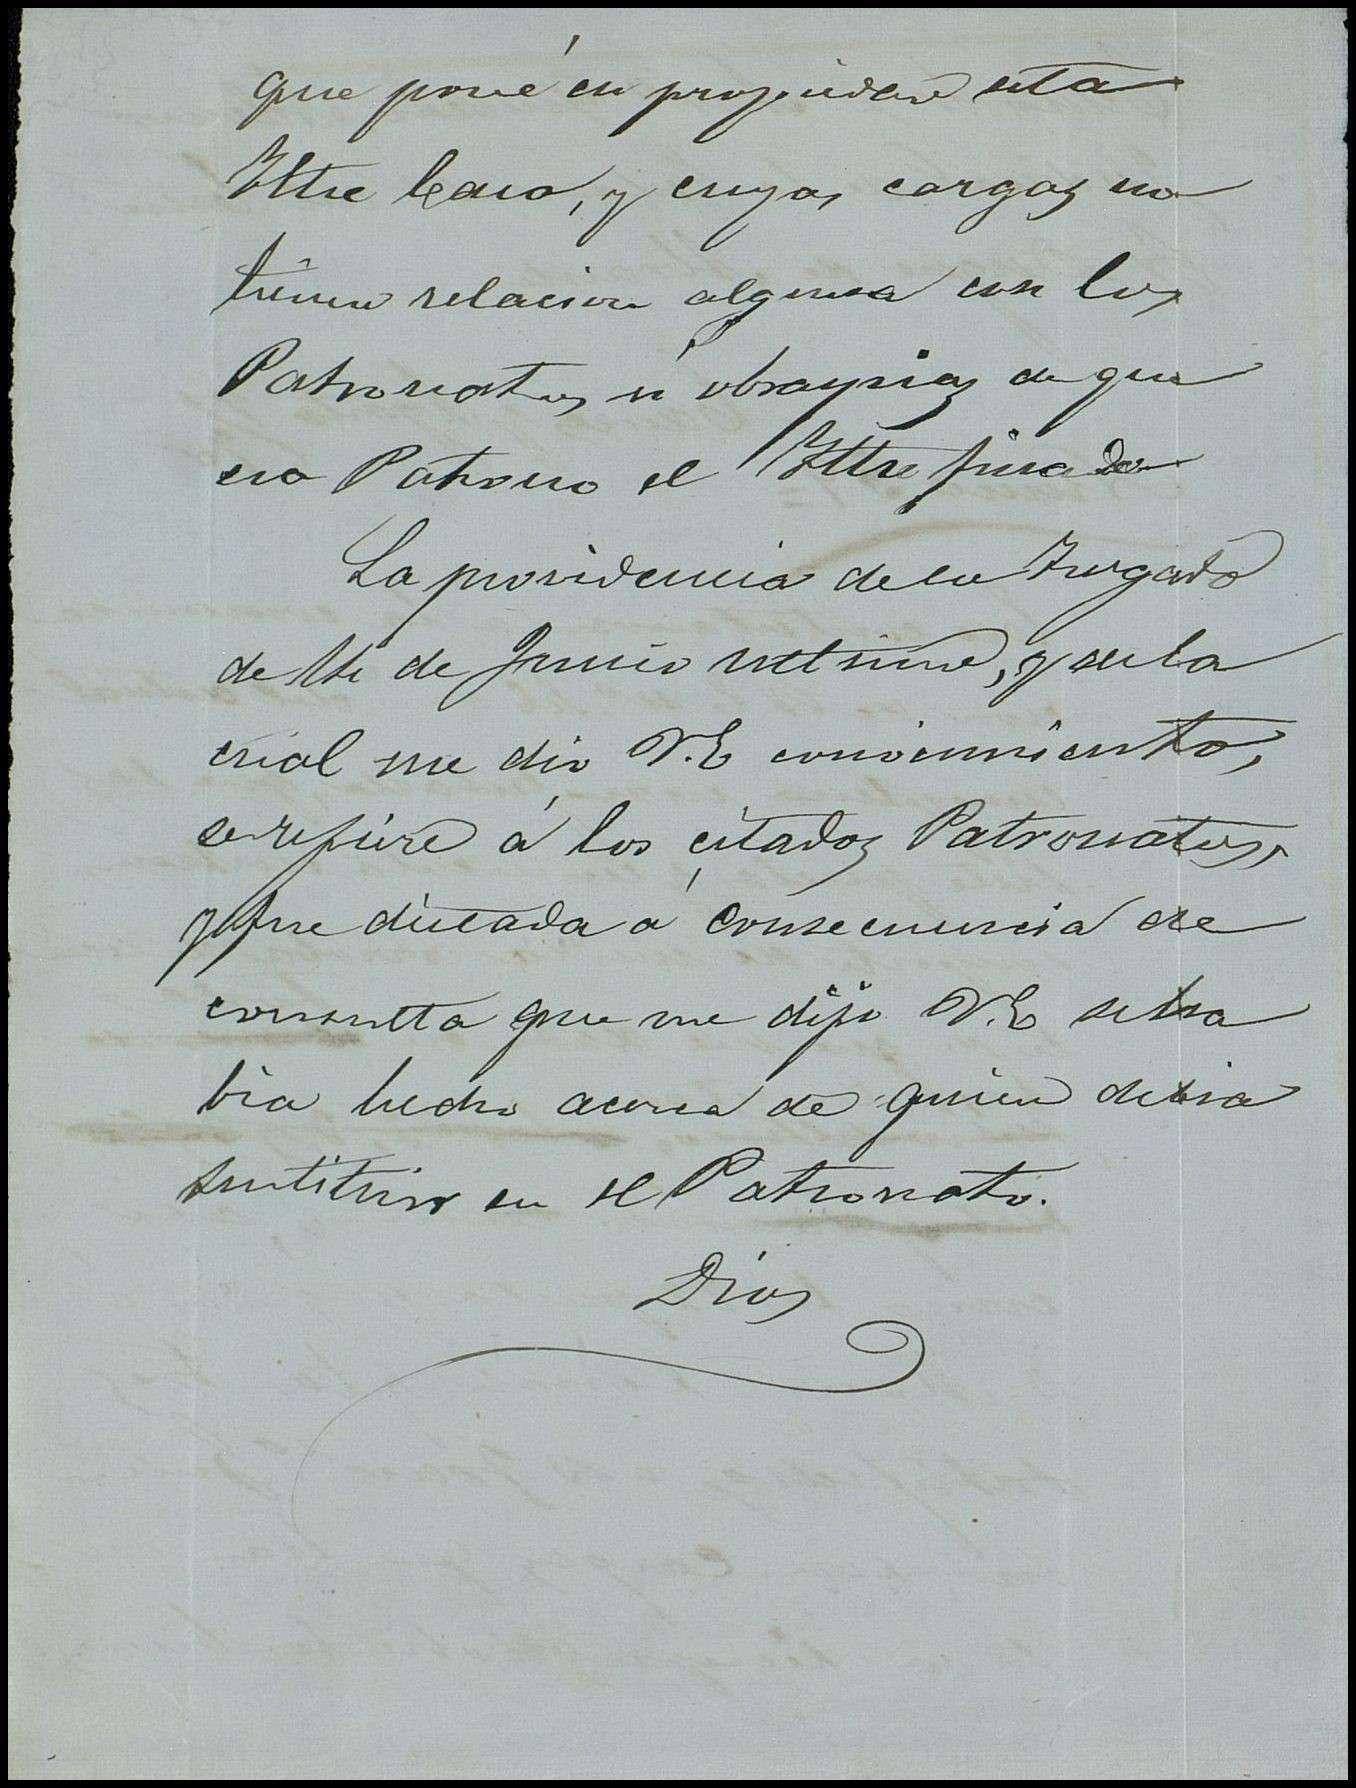 que posé en propiedad esta
Iltre Casa, y cuyas cargas no
tienen relacion alguna con los
Patronatos ú obraspias de que
era Patrono el Iltre finado
La providencia de ese Juzgado
de de Junio ultimo, y de la
cual me dio V.E conocimiento,
se refiere á los citados Patronatos,
y fue dictada á consecuencia de
consulta que me dijo V.E se ha
bia hecho acerca de quien debia
sustituir en el Patronato.
Dios